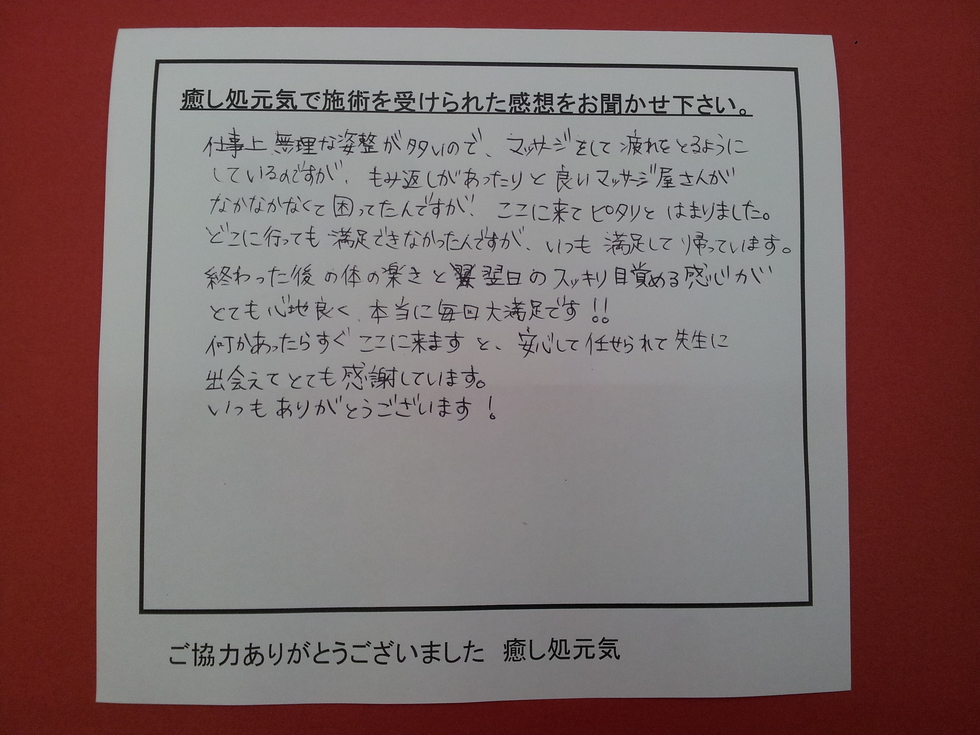 癒し処元気で施術を受けられた感想をお聞かせ下さい。
仕事上無理な姿整が多いので、マッサージをして疲れをとるように
しているのですが、もみ返しがあったりと良いマッサージ屋さんが
なかなかなくて困ってたんですが、ここに来てピタリとはまりました。
どこに行っても満足できなかったんですが、いつも満足して帰っています。
終わった後の体の楽さと翌日のスッキリ目覚める感じが
とても心地良く、本当に毎回大満足です!!
何かあったらすぐここに来ますと、安心して任せられて先生に
出会えてとても感謝しています。
いつもありがとうございます!
ご協力ありがとうございました 癒し処元気